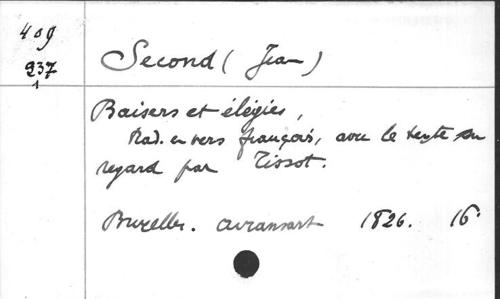 409
937
1
Second (Jean)
Baisers et élégies,
Trad. en vers français, avec le texte en
regard par Tissot.
Bruxelles. 1826. 16º